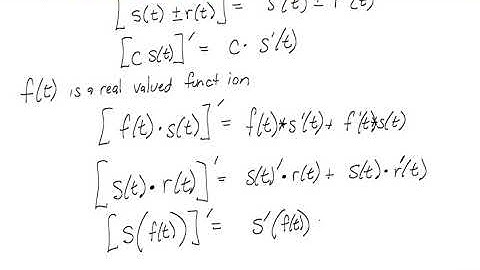 [s(t) ± r(t)]' = s'(t) ± r'(t)
[c s(t)]' = c · s'(t)
f(t) is a real valued function
[f(t) · s(t)]' = f(t)*s'(t) + f'(t)*s(t)
[s(t) · r(t)]' = s(t)' · r(t) + s(t) · r'(t)
[s(f(t))]' = s'(f(t)) ·